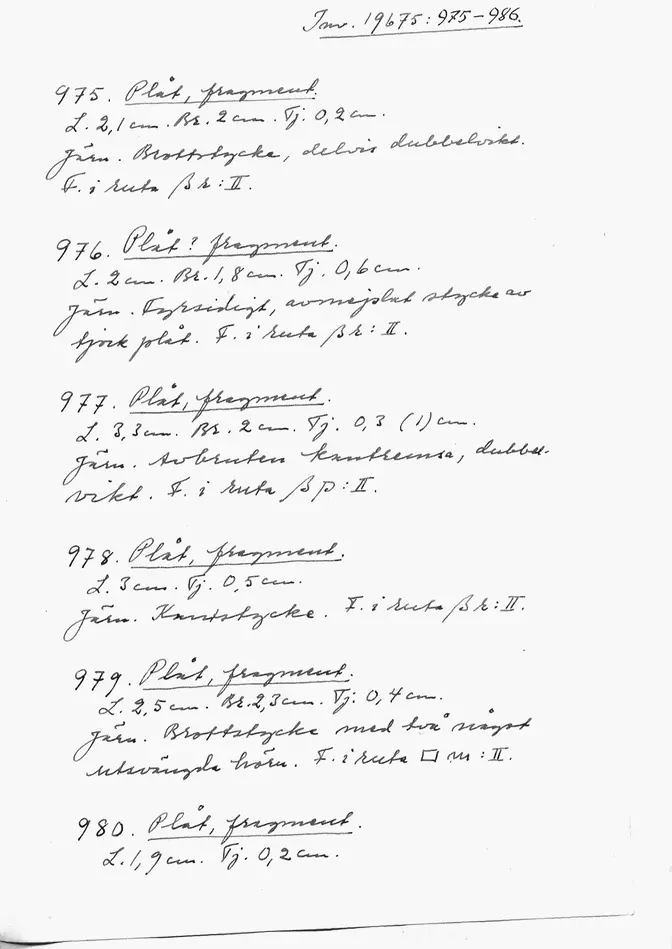 Inv. 19675: 975-986.
975. Plåt, fragment.
L. 2,1 cm. Br. 2 cm. Tj. 0,2 cm.
Järn. Brottstycke, delvis dubbelvikt.
F. i ruta β r: II.
976. Plåt? fragment.
L. 2 cm. Br. 1,8 cm. Tj. 0,6 cm.
Järn. Fyrsidigt, avmejslat stycke av
tjock plåt. F. i ruta β r: II.
977. Plåt, fragment.
L. 3,3 cm. Br. 2 cm. Tj. 0,3 (1) cm.
Järn. Avbruten kantremsa, dubbel-
vikt. F. i ruta β p: II.
978. Plåt, fragment.
L. 3 cm. Tj. 0,5 cm.
Järn. Kantstycke. F. i ruta β r: II.
979. Plåt, fragment.
L. 2,5 cm. Br. 2,3 cm. Tj. 0,4 cm.
Järn. Brottstycke med två något
utsvängda hörn. F. i ruta □ m: II.
980. Plåt, fragment.
L. 1,9 cm. Tj. 0,2 cm.